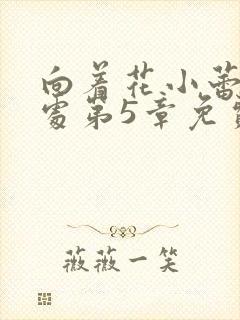 向着花小蕾
处第5章免费
薇薇一笑